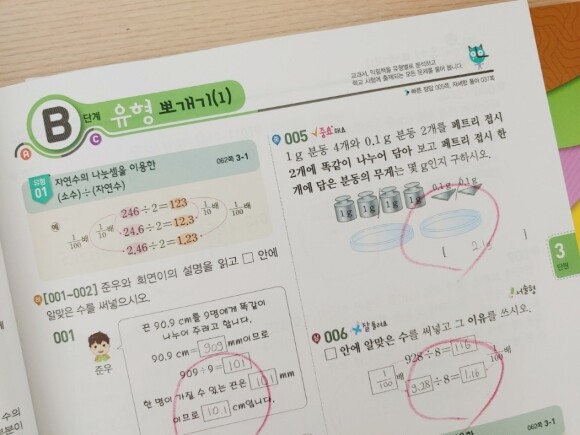 교과서, 익힘책을 유형별로 분석하고
학교 시험에 출제되는 모든 문제를 풀어 봅니다.
▶ 빠른 정답 005쪽, 자세한 풀이 037쪽
B 단계 유형 뽀개기(1)
A
C
유형 01 자연수의 나눗셈을 이용한
(소수)÷(자연수)
062쪽 3-1
예
246÷2=123
24.6÷2=12.3
2.46÷2=1.23
1/100배 1/10배 1/10배 1/100배
[001~002] 준우와 희연이의 설명을 읽고 □ 안에
알맞은 수를 써넣으시오.
001
준우
끈 90.9 cm를 9명에게 똑같이
나누어 주려고 합니다.
90.9 cm=909 mm이므로
909÷9=101
한 명이 가질 수 있는 끈은 101 mm
이므로 10.1 cm입니다.
005 중요해요
1 g 분동 4개와 0.1 g 분동 2개를 페트리 접시
2개에 똑같이 나누어 담아 보고 페트리 접시 한
개에 담은 분동의 무게는 몇 g인지 구하시오.
0.1g 0.1g
1g 1g 1g 1g
3
단원
서술형
006 잘 틀려요
□ 안에 알맞은 수를 써넣고 그 이유를 쓰시오.
928÷8=116
1/100배 1/100배
9.28÷8=1.16
062쪽 3-1
수의